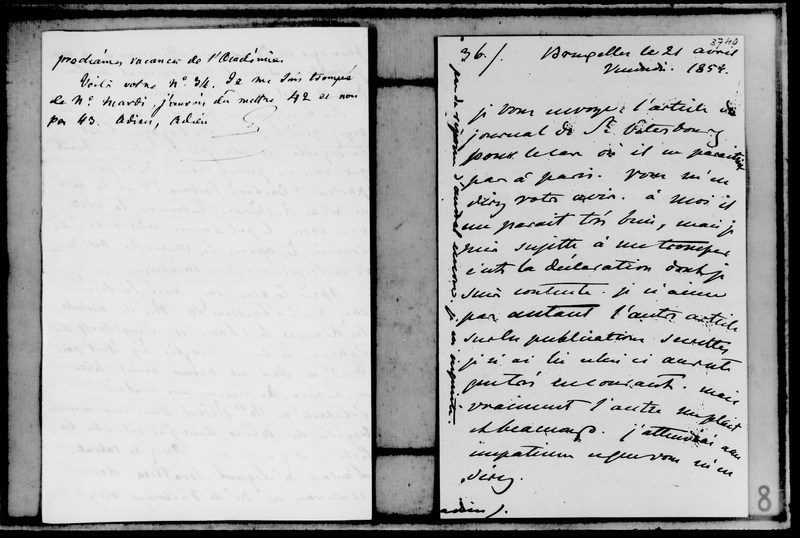 prochaines vacances de l'Académie.
Voilà votre N° 34. Je me suis trompé
de N° Mardi, j'aurais dû mettre 42 et non
pas 43. Adieu, Adieu
3740
36./. Bruxelles le 21 avril
Vendredi. 1854.
je vous envoye l'article du
journal de St Petersbourg
pour le cas où il ne paraitrait
pas à paris. vous m'en
direz votre avis. à moi il
me parait très bien, mais je
suis sujette à me tromper
c'est la déclaration dont je
suis contente. je n'aime
pas autant l'autre article
sur les publications secrettes
je n'ai lu celui ci au reste
qu'en courant. mais
vraiment l'autre me plait
et beaucoup. j'attendrai avec
impatience ce que vous m'en
direz.
adieu ).
pas de réponse d'... encore. je m'inquiète.
8